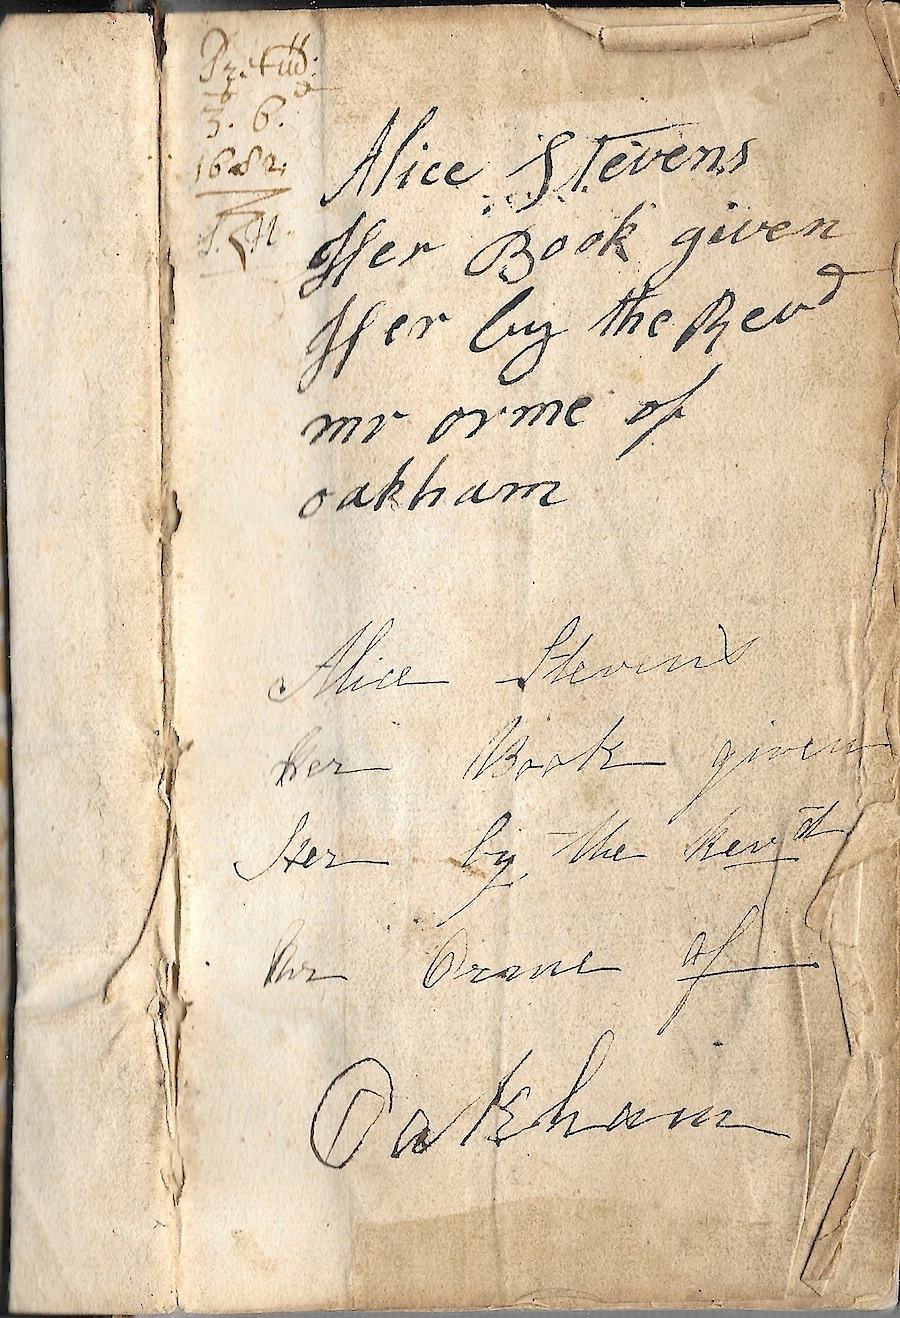 3. 6.d
1682
Alice Stevens
Her Book given
Her by the Revd
mr orme of
oakham
Alice Stevens
Her Book given
Her by the Revd
Mr Orme of
Oakham